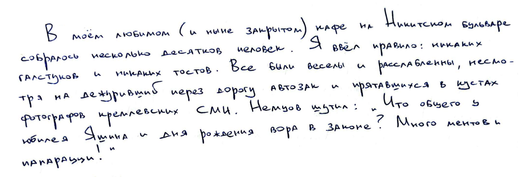 В моём любимом (и ныне закрытом) кафе на Никитском бульваре
собралось несколько десятков человек. Я ввёл правило: никаких
галстуков и никаких тостов. Все были веселы и расслабленны, несмо-
тря на дежуривший через дорогу автозак и прятавшихся в кустах
фотографов кремлевских СМИ. Немцов шутил: „Что общего у
юбилея Яшина и дня рождения вора в законе? Много ментов и
папарацци!"